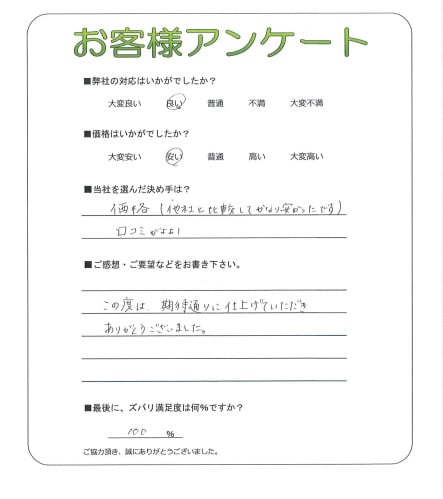 お客様アンケート
■弊社の対応はいかがでしたか？
大変良い 良い 普通 不満 大変不満
■価格はいかがでしたか？
大変安い 安い 普通 高い 大変高い
■当社を選んだ決め手は？
価格（他社と比較してかなり安かったです）
口コミがよい
■ご感想・ご要望などをお書き下さい。
この度は、期待通りに仕上げていただき
ありがとうございました。
■最後に、ズバリ満足度は何％ですか？
100 ％
ご協力頂き、誠にありがとうございました。